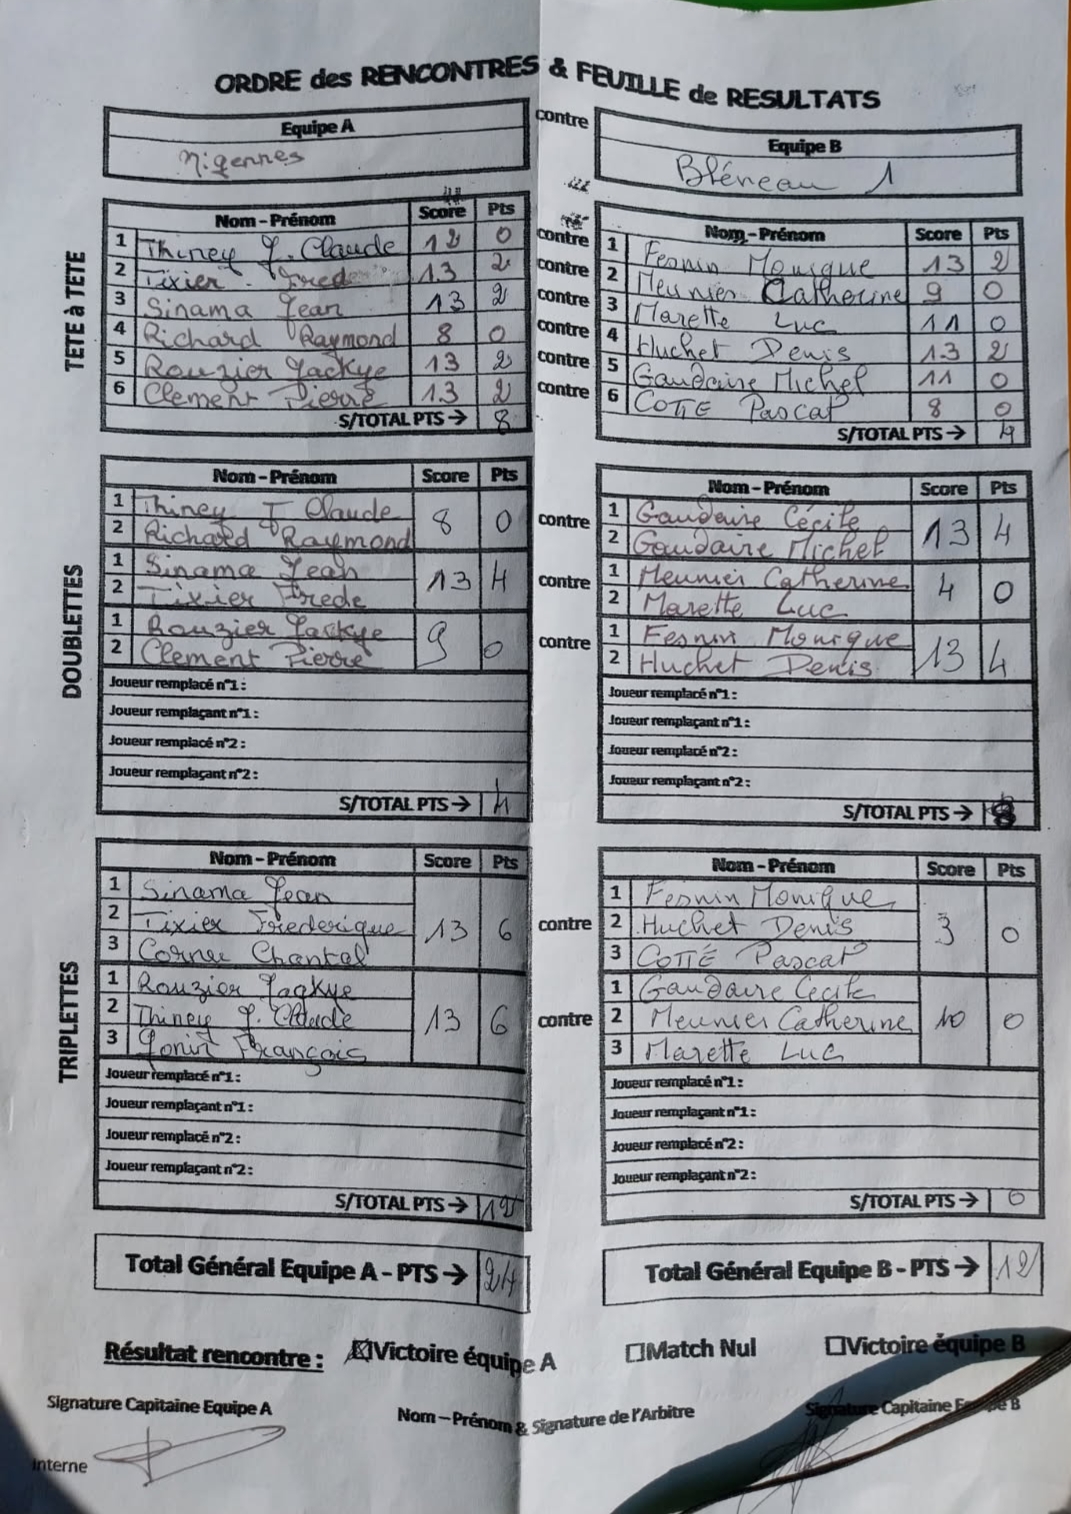 ORDRE des RENCONTRES & FEUILLE de RESULTATS
Equipe A
Migennes
contre
Equipe B
Bléneau 1
TETE à TETE
Nom - Prénom Score Pts
1 Thiney J. Claude 12 0
2 Tixier Fred 13 2
3 Sinama Jean 13 2
4 Richard Raymond 8 0
5 Rouzier Jackye 13 2
6 Clement Pierre 13 2
S/TOTAL PTS → 8
contre
contre
contre
contre
contre
contre
Nom - Prénom Score Pts
1 Fesnin Monique 13 2
2 Meunier Catherine 9 0
3 Marette Luc 11 0
4 Huchet Denis 13 2
5 Gaudaire Michel 11 0
6 COTTÉ Pascal 8 0
S/TOTAL PTS → 4
DOUBLETTES
Nom - Prénom Score Pts
1 Thiney J Claude
2 Richard Raymond
8 0
1 Sinama Jean
2 Tixier Frede
13 4
1 Rouzier Jackye
2 Clement Pierre
9 0
Joueur remplacé n°1 :
Joueur remplaçant n°1 :
Joueur remplacé n°2 :
Joueur remplaçant n°2 :
S/TOTAL PTS → 4
contre
contre
contre
Nom - Prénom Score Pts
1 Gaudaire Cécile
2 Gaudaire Michel
13 4
1 Meunier Catherine
2 Marette Luc
4 0
1 Fesnin Monique
2 Huchet Denis
13 4
Joueur remplacé n°1 :
Joueur remplaçant n°1 :
Joueur remplacé n°2 :
Joueur remplaçant n°2 :
S/TOTAL PTS → 8
TRIPLETTES
Nom - Prénom Score Pts
1 Sinama Jean
2 Tixier Frederique
3 Cornu Chantal
13 6
1 Rouzier Jackye
2 Thiney J. Claude
3 Gonin François
13 6
Joueur remplacé n°1 :
Joueur remplaçant n°1 :
Joueur remplacé n°2 :
Joueur remplaçant n°2 :
S/TOTAL PTS → 12
contre
contre
Nom - Prénom Score Pts
1 Fesnin Monique
2 Huchet Denis
3 COTTÉ Pascal
3 0
1 Gaudaire Cecile
2 Meunier Catherine
3 Marette Luc
10 0
Joueur remplacé n°1 :
Joueur remplaçant n°1 :
Joueur remplacé n°2 :
Joueur remplaçant n°2 :
S/TOTAL PTS → 0
Total Général Equipe A - PTS → 24
Total Général Equipe B - PTS → 12
Résultat rencontre : ☒Victoire équipe A ☐Match Nul ☐Victoire équipe B
Signature Capitaine Equipe A
Nom – Prénom & Signature de l'Arbitre
Signature Capitaine Equipe B
Interne